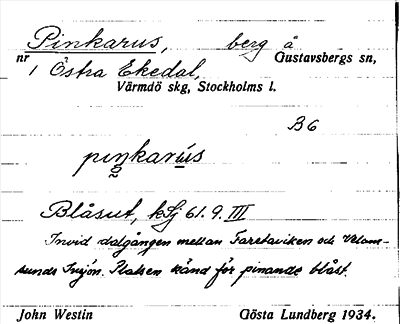 Pinkarus, berg å
nr 1 Östra Ekedal, Gustavsbergs sn,
Värmdö skg, Stockholms l.
B6
pinkarùs
Blåsut, kSj 61.9.III
Invid dalgången mellan Farstaviken och
sunds Insjön. Platsen känd för pinande blåst.
John Westin Gösta Lundberg 1934.